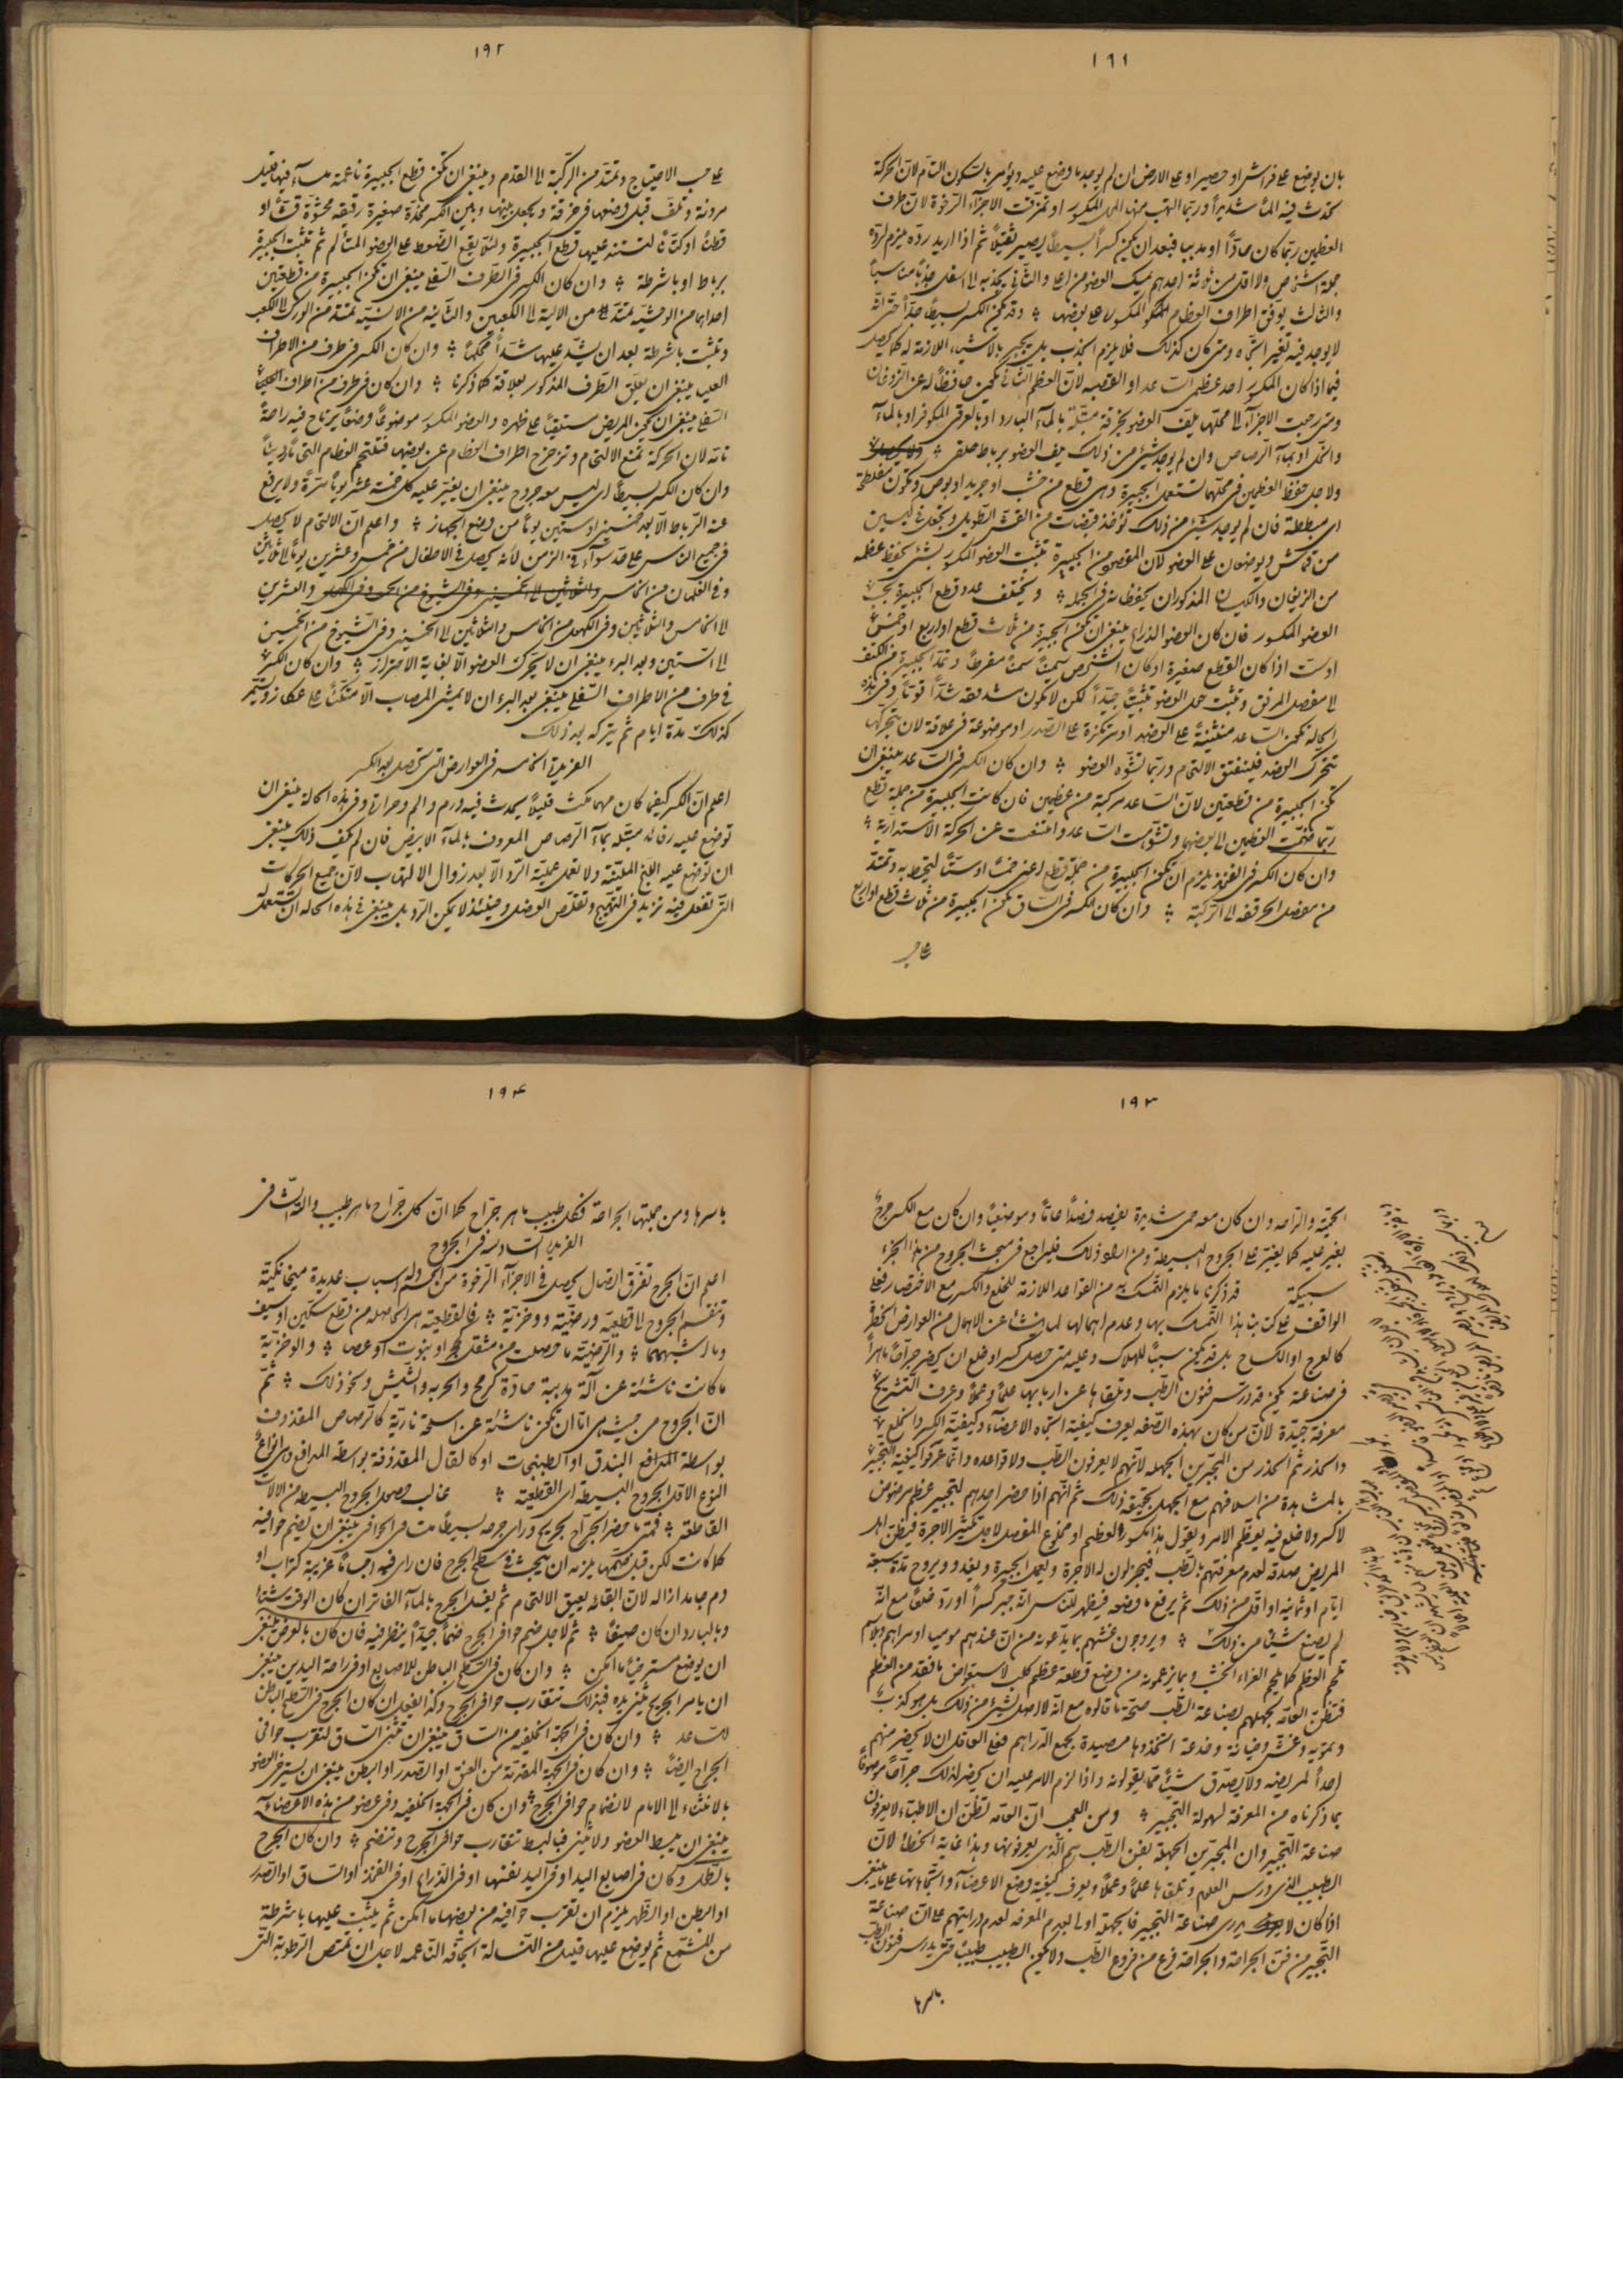 ١٩١
بان يوضع على فراش او حصير او على الارض ان لم يوجد ما وضع عليه ويؤمر بالسكون التام لان الحركة
تحدث فيه الماً شديداً وربما التهب منها المحل المكسور او تمزقت الاجزآء الرخوة لان طرف
العظمين ربما كان حادّاً او مدببا فبعد ان يكون كسراً بسيطاً يصير ثقيلاً ثم اذا اريد ردّه يلزم لردّه
جملة اشخاص ولا اقل من ثلثة احدهم يمسك العضو من اعلى والثانى يجذبه الى اسفل جذباً مناسباً
والثالث يوفق اطراف العظام المكسور على بعضها وقد يكون الكسر بسيطاً جدّاً حتى انه
لا يوجد فيه تغير اتجاه ومتى كان كذلك فلا يلزم الجذب بل يجبر بالاشيآء اللازمة له كما يحصل
فيما اذا كان المكسور احد عظمى الساعد او القصبه لان العظم الثانى يكون حافظاً له عن الزوغان
ومتى رجعت الاجزآء الى محلّها يلف العضو بخرقة مبتلّة بالمآء البارد او بالعرقى المكوفر او بالمآء
والخل او بمآء الرصاص وان لم يوجد شئ من ذلك يلف العضو برباط حلقى
ولاجل حفظ العظمين فى محلّهما تستعمل الجبيرة وهى قطع من خشب او جريد او بوص وتكون مفلطحة
اى مبططة فان لم يوجد شئ من ذلك تؤخذ قبضات من القش الطويل وتجعل فى كيسين
من قماش ويوضعان على العضو لان المقصود من الجبيرة تثبيت العضو المكسور بشئ يحفظ عظمه
من الزيغان والكيسان المذكوران يحفظانه فى الجملة ويختلف عدد قطع الجبيرة بحسب
العضو المكسور فان كان العضو الذراع ينبغى ان تكون الجبيرة من ثلاث قطع او اربع او خمس
او ست اذا كان القطع صغيرة او كان الشخص سميناً سمناً مفرطاً وتمتد الجبيرة من الكتف
الى مفصل المرفق وتثبت حول العضو تثبيتاً جيّداً لكن لا تكون مشدوده شدّاً قويّاً وفى هذه
الحالة تكون الساعد منثنية على العضد او مرتكزة على الصدر او موضوعة فى علاقة لان بتحرّكها
تتحرك العضد فينفتق الالتحام وربما تشوّه العضو وان كان الكسر فى الساعد ينبغى ان
تكون الجبيرة من قطعتين لان الساعد مركبة من عظمين فان كانت الجبيرة من جملة قطع
ربما ضمّت العظمين الى بعضهما وتشوّهت الساعد وامتنعت عن الحركة الاستدارية
وان كان الكسر فى الفخذ يلزم ان تكون الجبيرة من جملة قطع اعنى خمساً او ستاً لتحيط به وتمتد
من مفصل الحرقفه الى الركبة وان كان الكسر فى الساق تكون الجبيرة من ثلاث قطع او اربع
على حسب
١٩٢
على حسب الاحتياج وتمتد من الركبة الى القدم وينبغى ان تكون قطع الجبيرة ناعمة ملسآء فيها قليل
مرونة وتلف قبل وضعها فى خرقة ويجعل بينها وبين الكسر مخدّة صغيرة رقيقه محشوّة قشّاً او
قطناً او كتّاناً لتستند عليها قطع الجبيرة ولئلا يقع الضغوط على العضو المتألم ثم تثبت الجبيرة
برباط او باشرطة وان كان الكسر فى الطرف السفلى ينبغى ان تكون الجبيرة من قطعتين
احداهما من الوحشية ممتدّة من الالية الى الكعبين والثانيه من الانسية تمتد من الورك الى الكعب
وتثبت باشرطة بعد ان يشدّ عليها شدّاً محكماً وان كان الكسر فى طرف من الاطراف
العليا ينبغى ان يعلق الطرف المذكور بعلاقة كما ذكرنا وان كان فى طرف من اطراف
السفلى ينبغى ان يكون المريض مستلقياً على ظهره والعضو المكسور موضوعاً وضعاً يرتاح فيه راحة
تامّه لان الحركة تمنع الالتحام وتزحزح اطراف العظام عن بعضها فتلتحم العظام التحاماً رديئاً
وان كان الكسر بسيطاً اى ليس معه جروح ينبغى ان يغيّر عليه كل خمسة عشر يوماً مرّة ولا يرفع
عنه الرباط الا بعد خمسين او ستين يوماً من وضع الجهاز واعلم ان الالتحام لا يحصل
فى جميع الناس على حدّ سوآء فى الزمن لانه يحصل فى الاطفال من خمس وعشرين يوماً الى ثلاثين
وفى الغلمان من الخامس والعشرين
الى الخامس والثلاثين وفى الكهول من الخامس والثلاثين الى الخمسين وفى الشيوخ من الخمسين
الى الستين وبعد البرء ينبغى ان لا يتحرك العضو الا بغاية الاحتراز وان كان الكسر
فى طرف من الاطراف السفلى ينبغى بعد البرء ان لا يمشى المصاب الا متكئاً على عكاز ويستمر
كذلك مدّة ايام ثم يتركه بعد ذلك
الفريدة الخامسه فى العوارض التى تحصل بعد الكسر
اعلم ان الكسر كيفما كان مهما مكث قليلاً يحدث فيه ورم والم وحرارة وفى هذه الحالة ينبغى ان
توضع عليه رفائد مبتلّة بمآء الرصاص المعروف بالمآء الابيض فان لم يكف ذلك ينبغى
ان توضع عليه اللبخ الملينة ولا تعمل عملية الرد الا بعد زوال الالتهاب لان جميع الحركات
التى تفعل فيه تزيد فى التهيج وتقلص العضل وحينئذ لا يمكن الرد بل ينبغى فى هذه الحاله ان تستعمل
١٩٣
الحمية والراحه وان كان معه حمى شديدة يفصد فصداً عامّاً وموضعياً وان كان مع الكسر جرح
يغير عليه كما يغيّر على الجروح البسيطة ومن اراد ذلك فليراجع فى مبحث الجروح من هذا الجزء
سبيكة قد ذكرنا ما يلزم التمسك به من القواعد اللازمة للخلع والكسر مع الاختصار فعلى
الواقف على كتابنا هذا التمسك بها وعدم اهمالها لما ينشأ عن الاهمال من العوارض الخطرة
كالعرج او الكساح بل قد يكون سبباً للهلاك وعليه متى حصل كسر او خلع ان يحضر جرّاحاً ماهراً
فى صناعته يكون قد درس فنون الطبّ وتلقاها عن اربابها علماً وعملاً وعرف التشريح
معرفة جيّدة لان من كان بهذه الصفه يعرف كيفية اتجاه الاعضآء وكيفية الكسر والخلع
والحذر ثم الحذر من المجبّرين الجهله لانهم لا يعرفون الطبّ ولا قواعده وانما عرفوا كيفية التجبير
بالمشاهدة من اسلافهم مع الجهل بحقيقة ذلك ثم انهم اذا حضر احدهم لتجبير عظم مرضوض
لا كسر ولا خلع فيه يعظّم الامر ويقول هذا مكسور العظم او مخلوع المفصل لاجل تكثير الاجرة فيظن اهل
المريض صدقه لعدم معرفتهم بالطبّ فيجزلون له الاجرة ويعمل الجبيرة ويغدو ويروح مدّة سبعة
ايام او ثمانية او اقل من ذلك ثم يرفع ما وضعه فيظهر للناس انه جبر كسراً او ردّ خلعاً مع انه
لم يصنع شيئاً من ذلك ويروجون غشهم بما يدّعونه من ان عندهم موميا او مراهم
تلحم العظم كما يلحم الغراء الخشب وبما يزعمونه من وضع قطعة عظم كلب لاستعواض ما فقد من العظم
فتظن العامّه لجهلهم بصناعة الطبّ صحّة ما قالوه مع انه لا اصل لشئ من ذلك بل هو كذب
وتمويه وغش وخيانة وخدعة اتخذوها مصيدة لجمع الدراهم فعلى العاقل ان لا يحضر منهم
احداً لمريضه ولا يصدّق شيئاً ممّا يقولونه واذا لزم الامر عليه ان يحضر لذلك جرّاحاً موصوفاً
بما ذكرناه من المعرفة لسهولة التجبير ومن العجب ان العامّه تظن ان الاطبّاء لا يعرفون
صناعة التجبير وان المجبّرين الجهلة بفن الطبّ هم الذى يعرفونها وهذا غاية الخطأ لان
الطبيب الذى درس العلوم وتلقاها علماً وعملاً ويعرف كيفية وضع الاعضآء واتجاهاتها على ما ينبغى
اذا كان لا يدرى صناعة التجبير فالجهلة اولى بعدم المعرفه لعدم درايتهم على ان صناعة
التجبير من فنّ الجراحة والجراحة فرع من فروع الطبّ ولا يكون الطبيب طبيباً حتى يدرس فنون الطبّ
باسرها
١٩٤
باسرها ومن جملتها الجراحة فكل طبيب ماهر جرّاح كما ان كل جرّاح ماهر طبيب والله الشافى
الفريدة السادسه فى الجروح
اعلم ان الجرح تفرّق اتصال يحصل فى الاجزآء الرخوة من الجسم وله اسباب عديدة ميخانيكية
وتنقسم الجروح الى قطعية ورضّية ووخزية فالقطعية هى الحاصلة من قطع سكّين او سيف
وما اشبههما والرضّية ما حصلت من مثقل كحجر او نبوت او عصا والوخزية
ما كانت ناشئة عن آلة مدببة حادّة كرمح والحربه والشيش ونحو ذلك ثم
ان الجروح من حيث هى اما ان تكون ناشئة عن اسلحة نارية كالرصاص المقذوف
بواسطة البندق او الطبنجات او كالقلل المقذوفة بواسطة المدافع وهى انواع
النوع الاول الجروح البسيطة اى القطعية غالب حصول الجروح البسيطه من الآلات
القاطعة فمتى ما حضر الجرّاح لجريح ورأى جرحه بسيطاً متساوى الحوافى ينبغى ان يضم حوافيه
كما كانت لكن قبل ضمّها يلزمه ان يبحث فى سطح الجرح فان رأى فيه اجساماً غريبة كتراب او
دم جامد ازاله لان ابقائه يعيق الالتحام ثم يغسل الجرح بالمآء الفاتر ان كان الوقت شتاءً
وبالبارد ان كان صيفاً ثم لاجل ضم حوافى الجرح ضمّاً جيّداً ينظر فيه فان كان بالعرض ينبغى
ان يوضع مسترخياً ما امكن وان كان فى السطح الباطن للاصابع او فى راحة اليدين ينبغى
ان يأمر الجريح بثنى يده فبذلك تتقارب حوافى الجرح وكذا يفعل ان كان الجرح فى السطح الباطن
للساعد وان كان فى الجهة الخلفيه من الساق ينبغى ان تثنى الساق لتقرب حوافى
الجراح ايضاً وان كان فى الجهة المقدّمة من العنق او الصدر او البطن ينبغى ان يسترخى العضو
بالانثناء الى الامام لانضمام حوافى الجرح وان كان فى الجهة الخلفيه وفى عضو من هذه الاعضآء
ينبغى ان يبسط العضو ولا يثنى فبالبسط تتقارب حوافى الجرح وتنضم وان كان الجرح
بالطول وكان فى اصابع اليد او فى اليد نفسها او فى الذراع او فى الفخذ او الساق او الصدر
او البطن او الظهر يلزم ان تقرب حوافيه من بعضها ما امكن ثم يثبت عليها باشرطة
من المشمّع ثم يوضع عليها قليل من النسالة الجافّة الناعمه لاجل ان تمتص الرطوبة التى